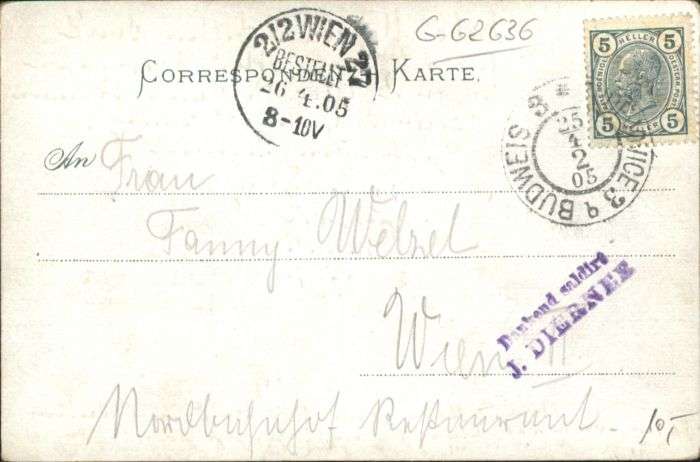 G-62636
2/2 WIEN 2
BESTELLT
26 4.05
8-10V
CORRESPONDENZ KARTE.
5 HELLER 5
5 HELLER 5
3 BUDWEIS 3
25
4
2
05
An Frau
Fanny Welzel
Wien II
Nordbahnhof Restaurant.
Dankend saldirt
J. DIERNEE
10,-